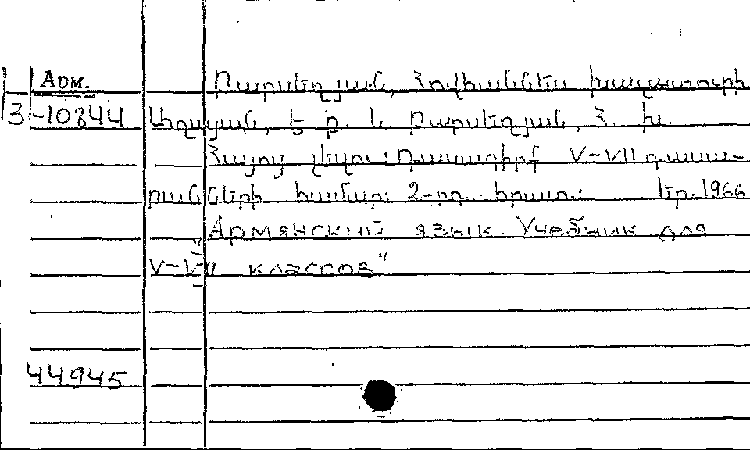 Арм. Բարսեղյան, Հովհաննես Խաչատուրի
3-10844 Աղայան, Է. Բ. և Բարսեղյան, Հ. Խ.
Հայոց լեզու: Դասագիրք V-VII դասա-
րանների համար: 2-րդ հրատ.: Եր. 1966
Армянский язык. Учебник для
V-VII классов"
44945